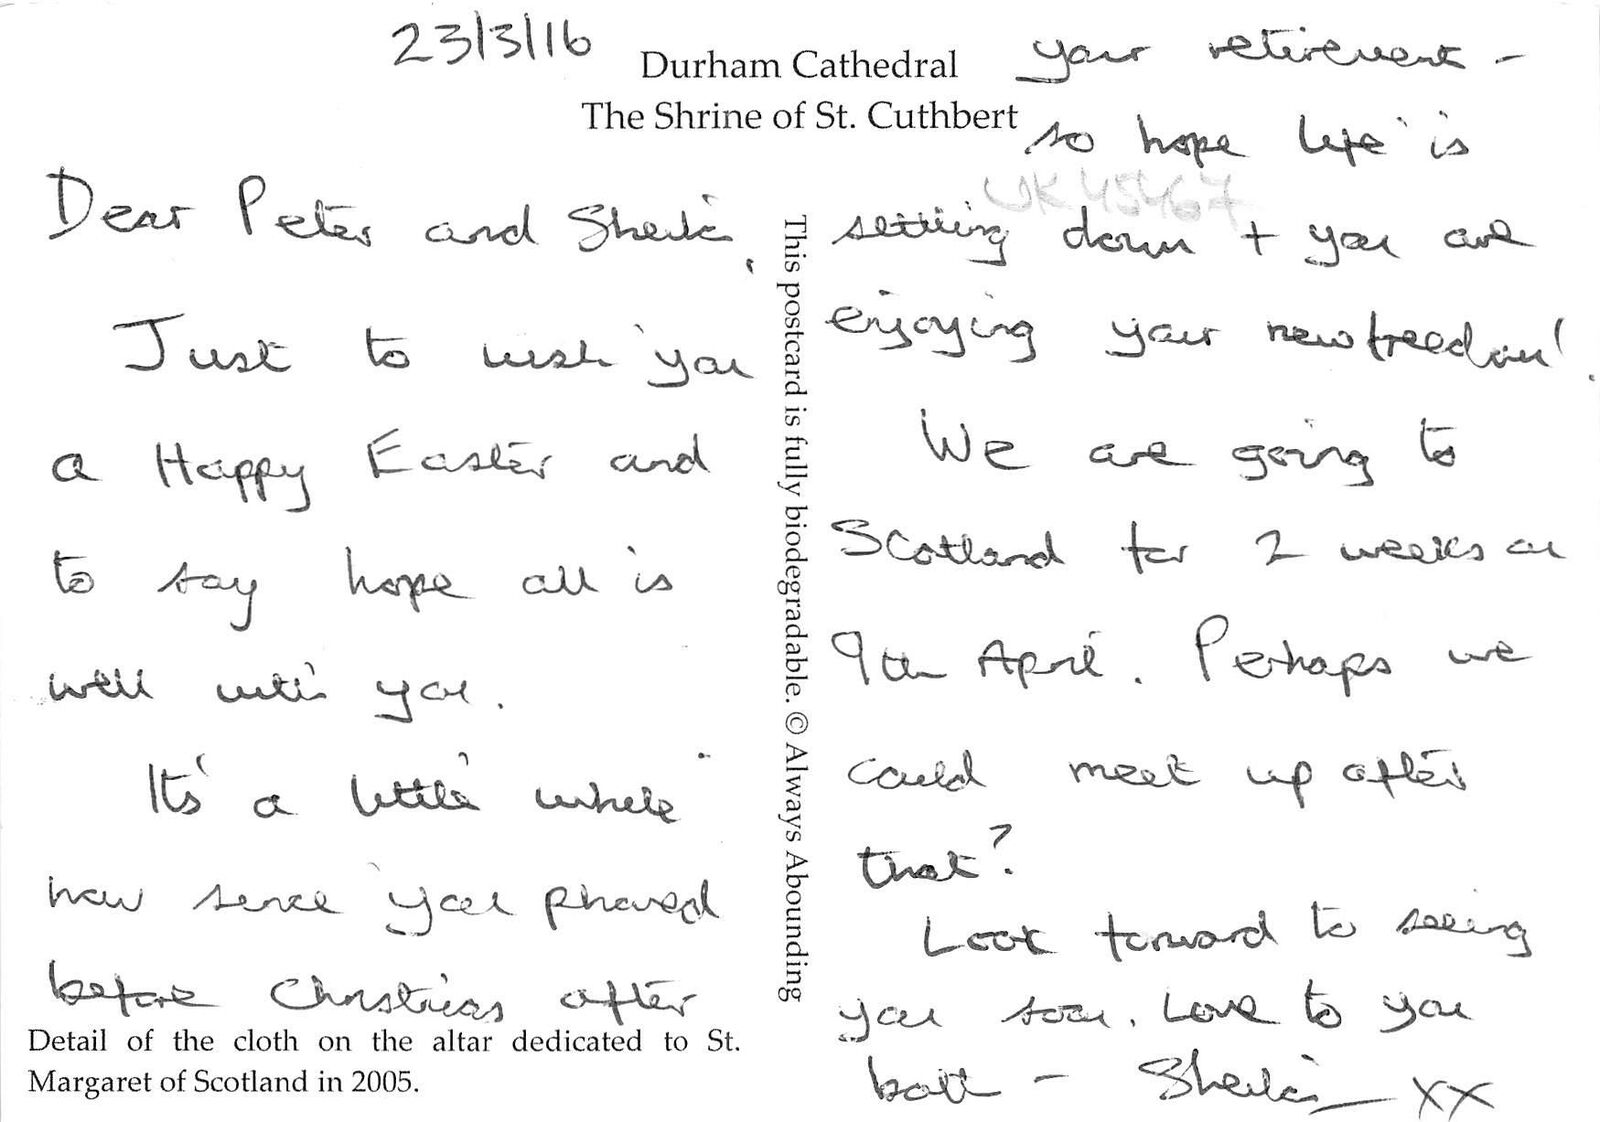 23/3/16
Durham Cathedral
The Shrine of St. Cuthbert
Dear Peter and Sheila,
Just to wish you
a Happy Easter and
to say hope all is
well with you.
It's a little while
now since you phoned
before Christmas after
Detail of the cloth on the altar dedicated to St.
Margaret of Scotland in 2005.
This postcard is fully biodegradable. © Always Abounding
your retirement -
so hope life is
UK45467
settling down + you are
enjoying your new freedom!
We are going to
Scotland for 2 weeks on
9th April. Perhaps we
could meet up after
that?
Look forward to seeing
you soon. Love to you
both - Sheila xx